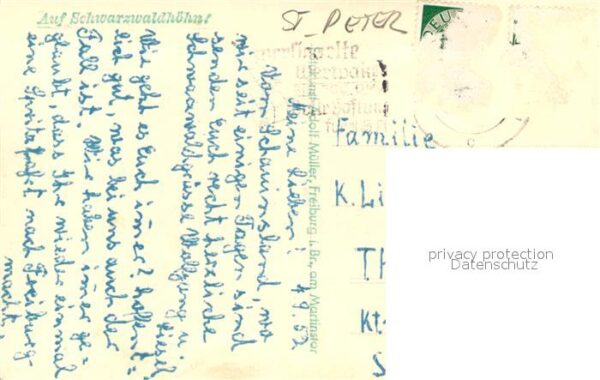 Auf Schwarzwaldhöhn!
ST. PETER
4.9.52
Meine Lieben!
Vom Schauinsland, wo
wir seit einigen Tagen sind
senden Euch recht herzliche
Schwarzwaldgrüsse Wolfgang u.
Liesel
Wie geht es Euch immer? hoffent-
lich gut, was bei uns auch der
Fall ist. Wir haben immer ge=
glaubt, dass Ihr wieder einmal
eine Spritzfahrt nach Freiburg
macht.
Müller, Freiburg i. Br., am Martinstor
DEU
Wertpaket
Familie
K. Li
Th
Kt.
S
privacy protection
Datenschutz